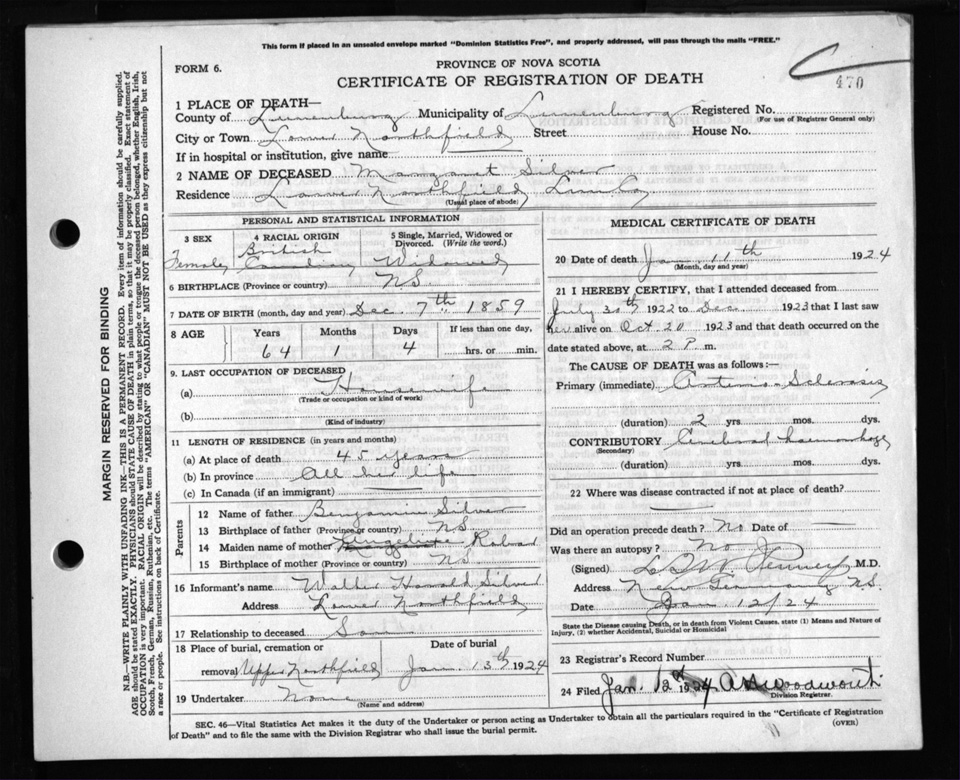 This form if placed in an unsealed envelope marked "Dominion Statistics Free", and properly addressed, will pass through the mails "FREE."
FORM 6.
PROVINCE OF NOVA SCOTIA
CERTIFICATE OF REGISTRATION OF DEATH
470
1 PLACE OF DEATH—
County of Lunenburg Municipality of Lunenburg Registered No.
(For use of Registrar General only)
City or Town Lower Northfield Street House No.
If in hospital or institution, give name
2 NAME OF DECEASED Margaret Silver
Residence Lower Northfield Lun. Co.
(Usual place of abode)
PERSONAL AND STATISTICAL INFORMATION
3 SEX 4 RACIAL ORIGIN 5 Single, Married, Widowed or Divorced. (Write the word.)
Female British Canadian Widowed
6 BIRTHPLACE (Province or country) N S.
7 DATE OF BIRTH (month, day and year) Dec. 7th 1859
8 AGE Years Months Days If less than one day,
64 1 4 hrs. or min.
9. LAST OCCUPATION OF DECEASED
(a) Housewife
(Trade or occupation or kind of work)
(b)
(Kind of industry)
11 LENGTH OF RESIDENCE (in years and months)
(a) At place of death 45 years
(b) In province All her life
(c) In Canada (if an immigrant)
Parents
12 Name of father Benjamin Silver
13 Birthplace of father (Province or country) N S
14 Maiden name of mother
15 Birthplace of mother (Province or country) N S
16 Informant's name Harold Silver
Address Lower Northfield
17 Relationship to deceased Son
18 Place of burial, cremation or removal Upper Northfield
Date of burial
Jan. 13th 1924
19 Undertaker None
(Name and address)
MEDICAL CERTIFICATE OF DEATH
20 Date of death Jan. 11th 1924
(Month, day and year)
21 I HEREBY CERTIFY, that I attended deceased from
July 30 1922 to Dec 1923 that I last saw
her alive on Oct 20 1923 and that death occurred on the
date stated above, at 2 P. m.
The CAUSE OF DEATH was as follows:—
Primary (immediate) Arterio-Sclerosis
(duration) 2 yrs. mos. dys.
CONTRIBUTORY Cerebral haemorrhage
(Secondary)
(duration) yrs. mos. dys.
22 Where was disease contracted if not at place of death?
Did an operation precede death? No Date of —
Was there an autopsy? No
(Signed) Penney M.D.
Address New Germany N.S.
Date Jan 12/24
State the Disease causing Death, or in death from Violent Causes, state (1) Means and Nature of
Injury, (2) whether Accidental, Suicidal or Homicidal
23 Registrar's Record Number
24 Filed Jan. 12th 1924 Woodworth
Division Registrar.
SEC. 46—Vital Statistics Act makes it the duty of the Undertaker or person acting as Undertaker to obtain all the particulars required in the "Certificate of Registration
of Death" and to file the same with the Division Registrar who shall issue the burial permit.
(OVER)
MARGIN RESERVED FOR BINDING
N.B.—WRITE PLAINLY WITH UNFADING INK—THIS IS A PERMANENT RECORD. Every item of information should be carefully supplied.
AGE should be stated EXACTLY. PHYSICIANS should STATE CAUSE OF DEATH in plain terms, so that it may be properly classified. Exact statement of
OCCUPATION is very important. RACIAL ORIGIN will be described by stating to what people or tongue the deceased person belonged, whether English, Irish,
Scotch, French, German, Russian, Ruthenian, etc. The terms "AMERICAN" or "CANADIAN" MUST NOT BE USED as they express citizenship but not
a race or people. See instructions on back of Certificate.